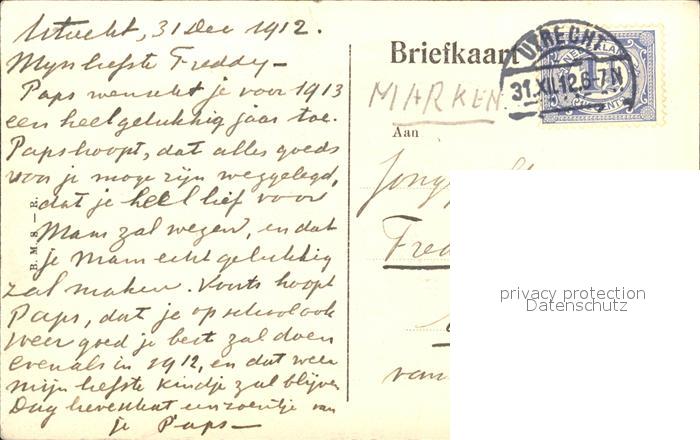 Utrecht, 31 Dec 1912.
Mijn liefste Freddy —
Paps wenscht je voor 1913
een heel gelukkig jaar toe.
Paps hoopt, dat alles goeds
voor je moge zijn weggelegd,
dat je heel lief voor
Mam zal wezen, en dat
je Mam echt gelukkig
zal maken. Voorts hoopt
Paps, dat je op school ook
weer goed je best zal doen
evenals in 1912, en dat weer
mijn liefste kindje zal blijven
Dag een zoentje van
je Paps —
B. M. S. — E.
Briefkaart
UTRECHT
31.XII.12.6-7N
1
MARKEN
Aan
Fred
van
privacy protection
Datenschutz